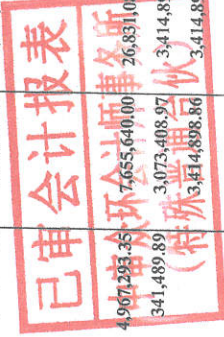 已审会计报表
中审众环会计师事务所
(特殊普通合伙)
4,967,293.35 7,655,640.00 26,831,0
341,489.89 3,073,408.97 3,414,89
3,414,898.86 3,414,89